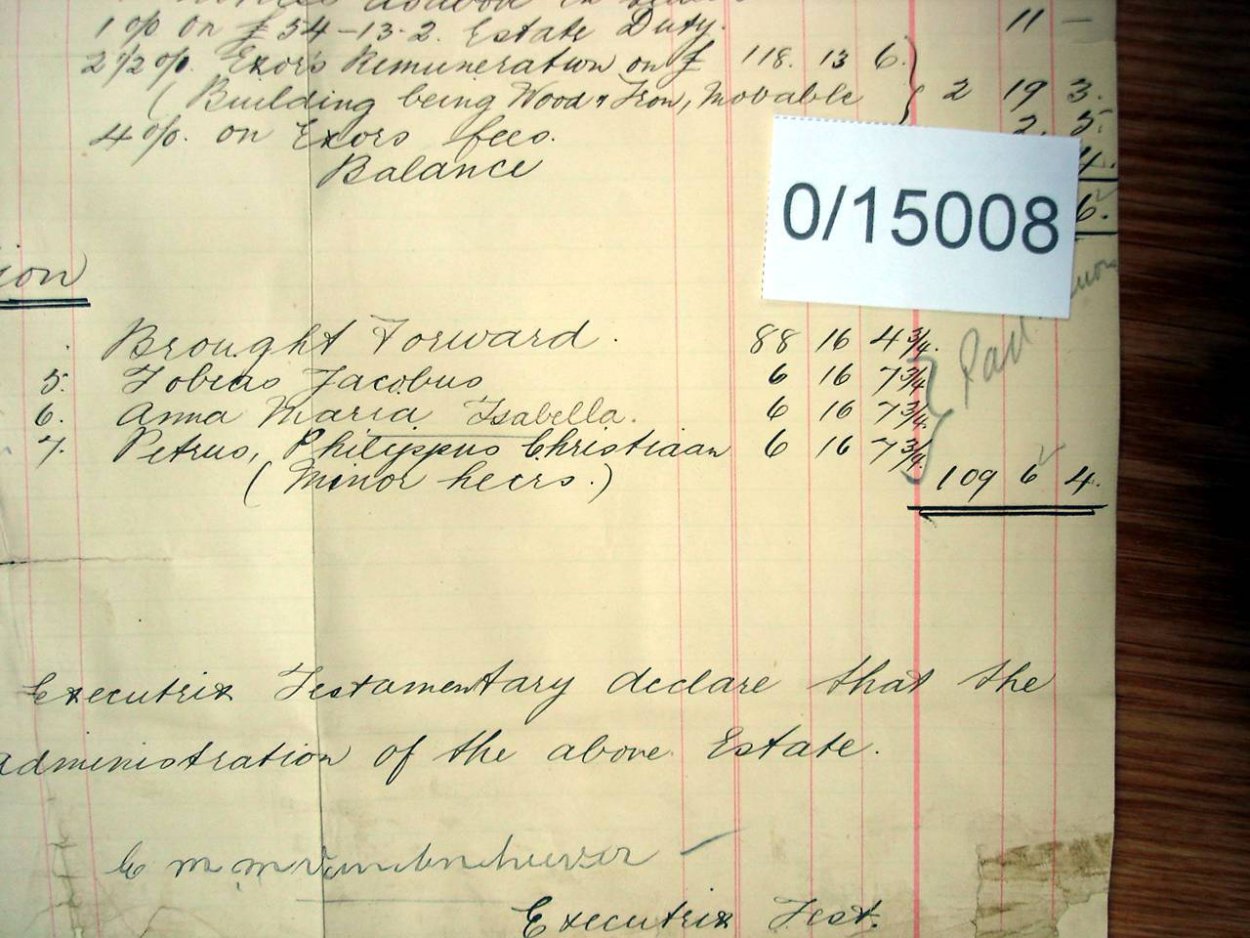 1 o/o on £54-13-2. Estate Duty. 11 —
2 1/2 o/o. Exor's Remuneration on £ 118. 13 6.
(Building being Wood & Iron, Movable 2 19 3.
4 o/o. on Exors fees. 2. 5.
Balance 4.
0/15008
6.
ion
Brought Forward. 88 16 4 3/4.
5. Tobias Jacobus 6 16 7 3/4
6. Anna Maria Isabella. 6 16 7 3/4.
7. Petrus, Philippus Christiaan 6 16 7 3/4.
(Minor heirs.) 109 6 4.
Executrix Testamentary declare that the
administration of the above Estate.
Executrix Test.